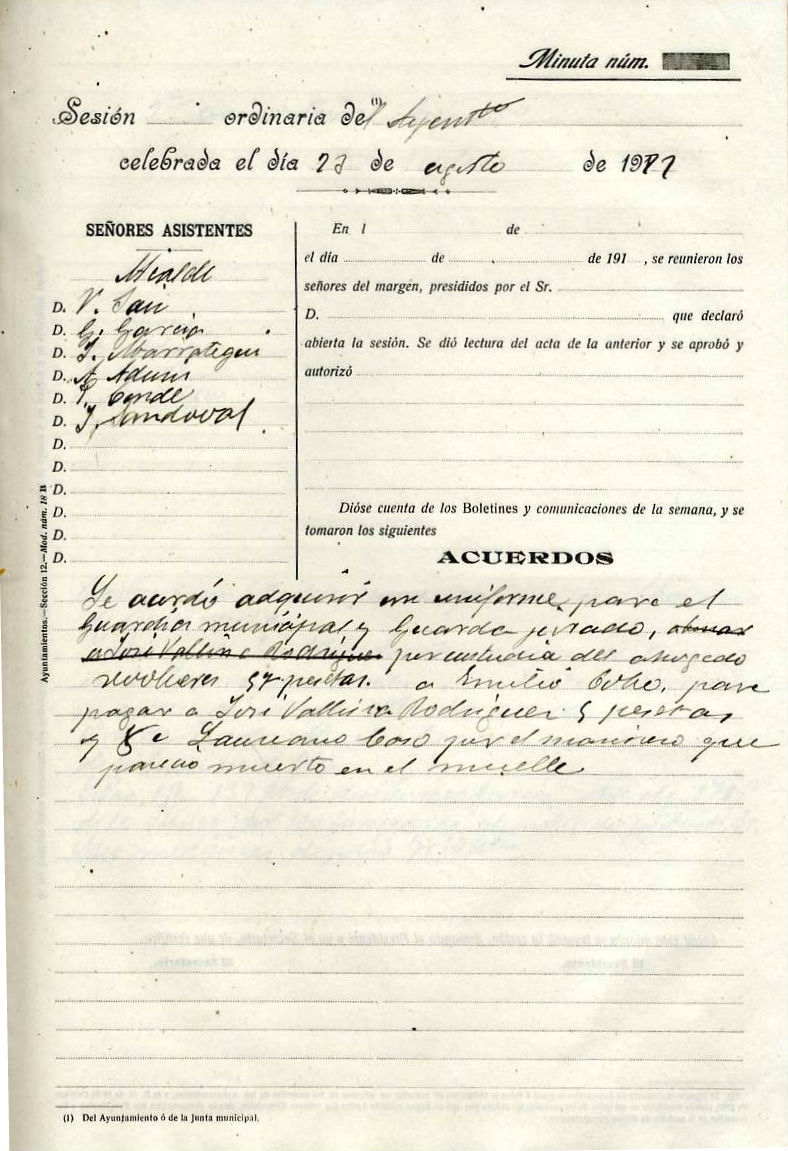 Minuta núm.
Sesión ordinaria de(1)l Ayuntto
celebrada el día 23 de agosto de 19
SEÑORES ASISTENTES
Alcalde
D. V. Sau
D. G. García
D. J. Abarrategui
D. A.
D. Conde
D. J. Sandoval
D.
D.
D.
D.
D.
D.
En l de
el día de de 191 , se reunieron los
señores del margen, presididos por el Sr.
D. que declaró
abierta la sesión. Se dió lectura del acta de la anterior y se aprobó y
autorizó
Dióse cuenta de los Boletines y comunicaciones de la semana, y se
tomaron los siguientes
ACUERDOS
Se acordó adquirir un uniforme para el
Guardia municipal y Guarda jurado,
a José Valliña Rodríguez por custodia del ahogado
57 pesetas. a Emilio Cobo, para
pagar a José Valliña Rodríguez 5 pesetas
y 8 a Laureano Coso por el marinero que
muerto en el muelle
Ayuntamientos.—Sección 12.—Mod. núm. 18 B
(1) Del Ayuntamiento ó de la Junta municipal.